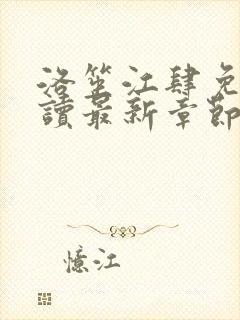 洛笙江肆免
讀最新章節
憶江